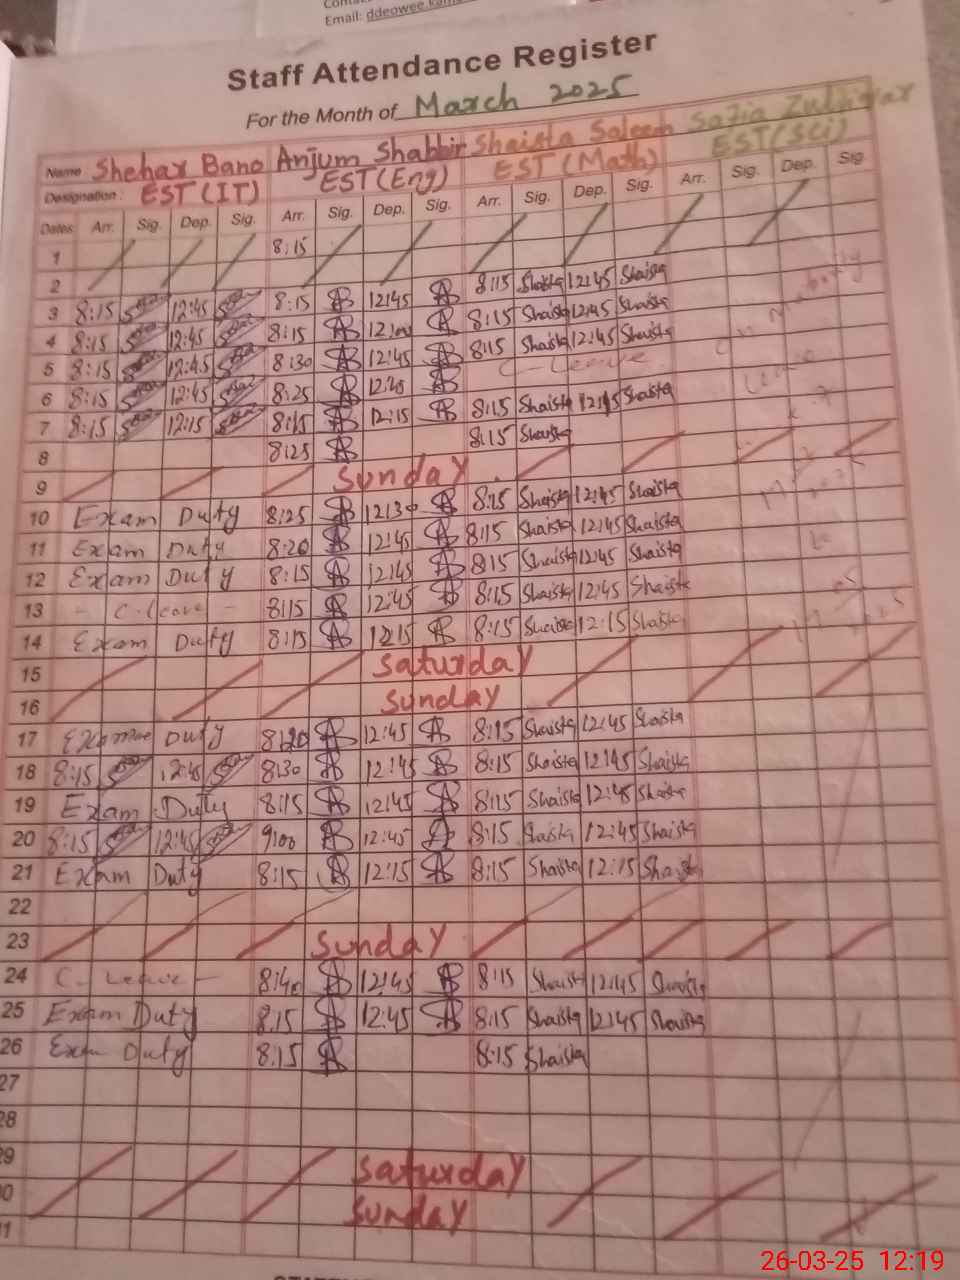 Email: ddeowee.
Staff Attendance Register
For the Month of March 2025
Name Shehar Bano Anjum Shabbir Shaista Saleem Safia Zulfiqar
Designation: EST (IT) EST (Eng) EST (Math) EST (Sci)
Dates Arr. Sig. Dep. Sig. Arr. Sig. Dep. Sig. Arr. Sig. Dep. Sig. Arr. Sig. Dep. Sig.
1 8:15
2
3 8:15 12:45 8:15 12:45 8:15 Shaista 12:45 Shaista
4 8:15 12:45 8:15 8:15 Shaista 12:45 Shaista
5 8:15 12:45 8:30 12:45 8:15 Shaista 12:45 Shaista
6 8:15 12:45 8:25 C-Leave
7 8:15 12:15 8:15 12:15 8:15 Shaista Shaista
8 8:25 8:15 Shaista
9 Sunday
10 Exam Duty 8:25 12:30 8:15 Shaista 12:45 Shaista
11 Exam Duty 8:20 12:45 8:15 Shaista 12:45 Shaista
12 Exam Duty 8:15 12:45 8:15 Shaista 12:45 Shaista
13 - C.leave - 8:15 12:45 8:15 Shaista 12:45 Shaista
14 Exam Duty 8:15 12:15 8:15 Shaista 12:15 Shaista
15 Saturday
16 Sunday
17 Duty 8:20 12:45 8:15 Shaista 12:45 Shaista
18 8:15 12:45 8:30 12:45 8:15 Shaista 12:45 Shaista
19 Exam Duty 8:15 12:45 8:15 Shaista 12:45 Shaista
20 8:15 12:45 9:00 12:45 8:15 Shaista 12:45 Shaista
21 Exam Duty 8:15 12:15 8:15 Shaista 12:15 Shaista
22
23 Sunday
24 C-Leave - 8:40 12:45 8:15 Shaista 12:45 Shaista
25 Exam Duty 8:15 12:45 8:15 Shaista 12:45 Shaista
26 Exam Duty 8:15 8:15 Shaista
27
28
29 Saturday
30 Sunday
31
26-03-25 12:19